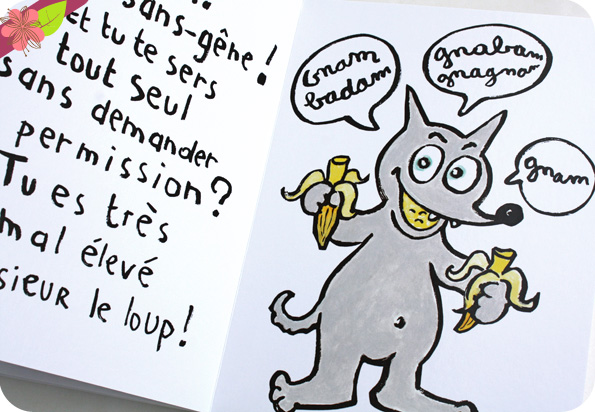 sans-gêne !
et tu te sers
tout seul
sans demander
permission ?
Tu es très
mal élevé
sieur le loup !
gnam
badam
gnabam
gnagnam
gnam